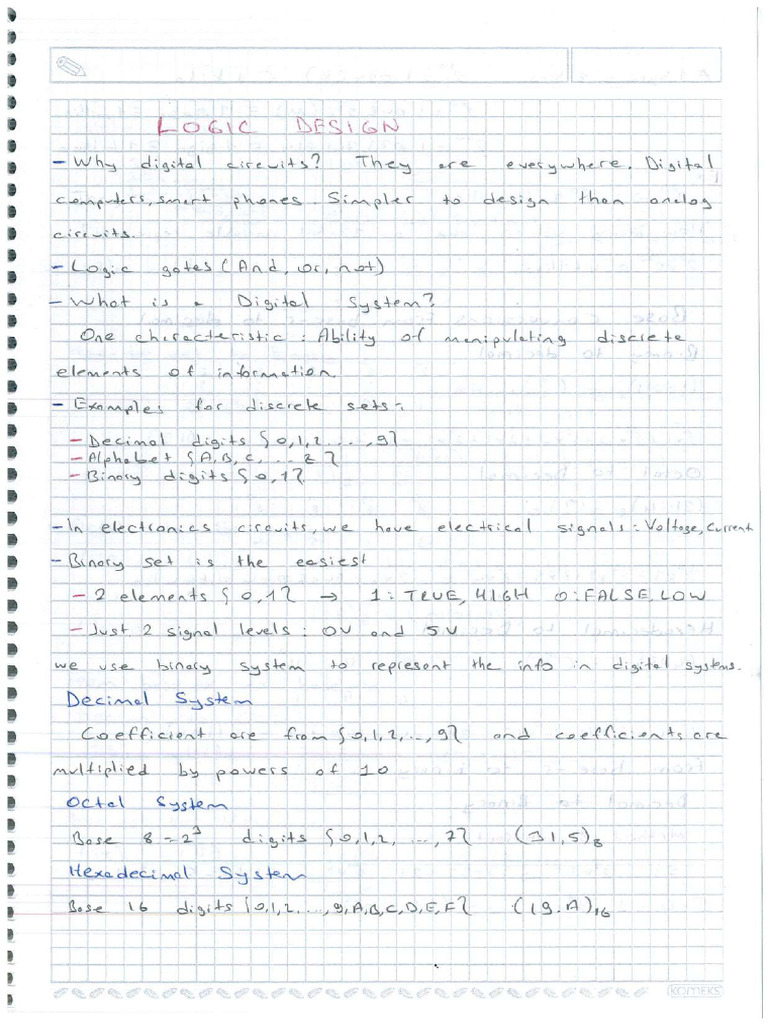 LOGIC DESIGN
- Why digital circuits? They are everywhere. Digital
computers, smart phones. Simpler to design than analog
circuits.
- Logic gates (And, or, not)
- What is a Digital System?
One characteristic : Ability of manipulating discrete
elements of information.
- Examples for discrete sets:
- Decimal digits {0,1,2 ..., 9}
- Alphabet {A,B,C, ... Z}
- Binary digits {0,1}
- In electronics circuits, we have electrical signals : Voltage, Current
- Binary set is the easiest
- 2 elements {0,1} → 1: TRUE, HIGH 0: FALSE, LOW
- Just 2 signal levels : 0V and 5V
we use binary system to represent the info in digital systems.
Decimal System
Coefficient are from {0,1,2,...,9} and coefficients are
multiplied by powers of 10
Octal System
Base 8 = 2³ digits {0,1,2, ...,7} (31,5)₈
Hexadecimal System
Base 16 digits {0,1,2,...,9,A,B,C,D,E,F} (19.A)₁₆